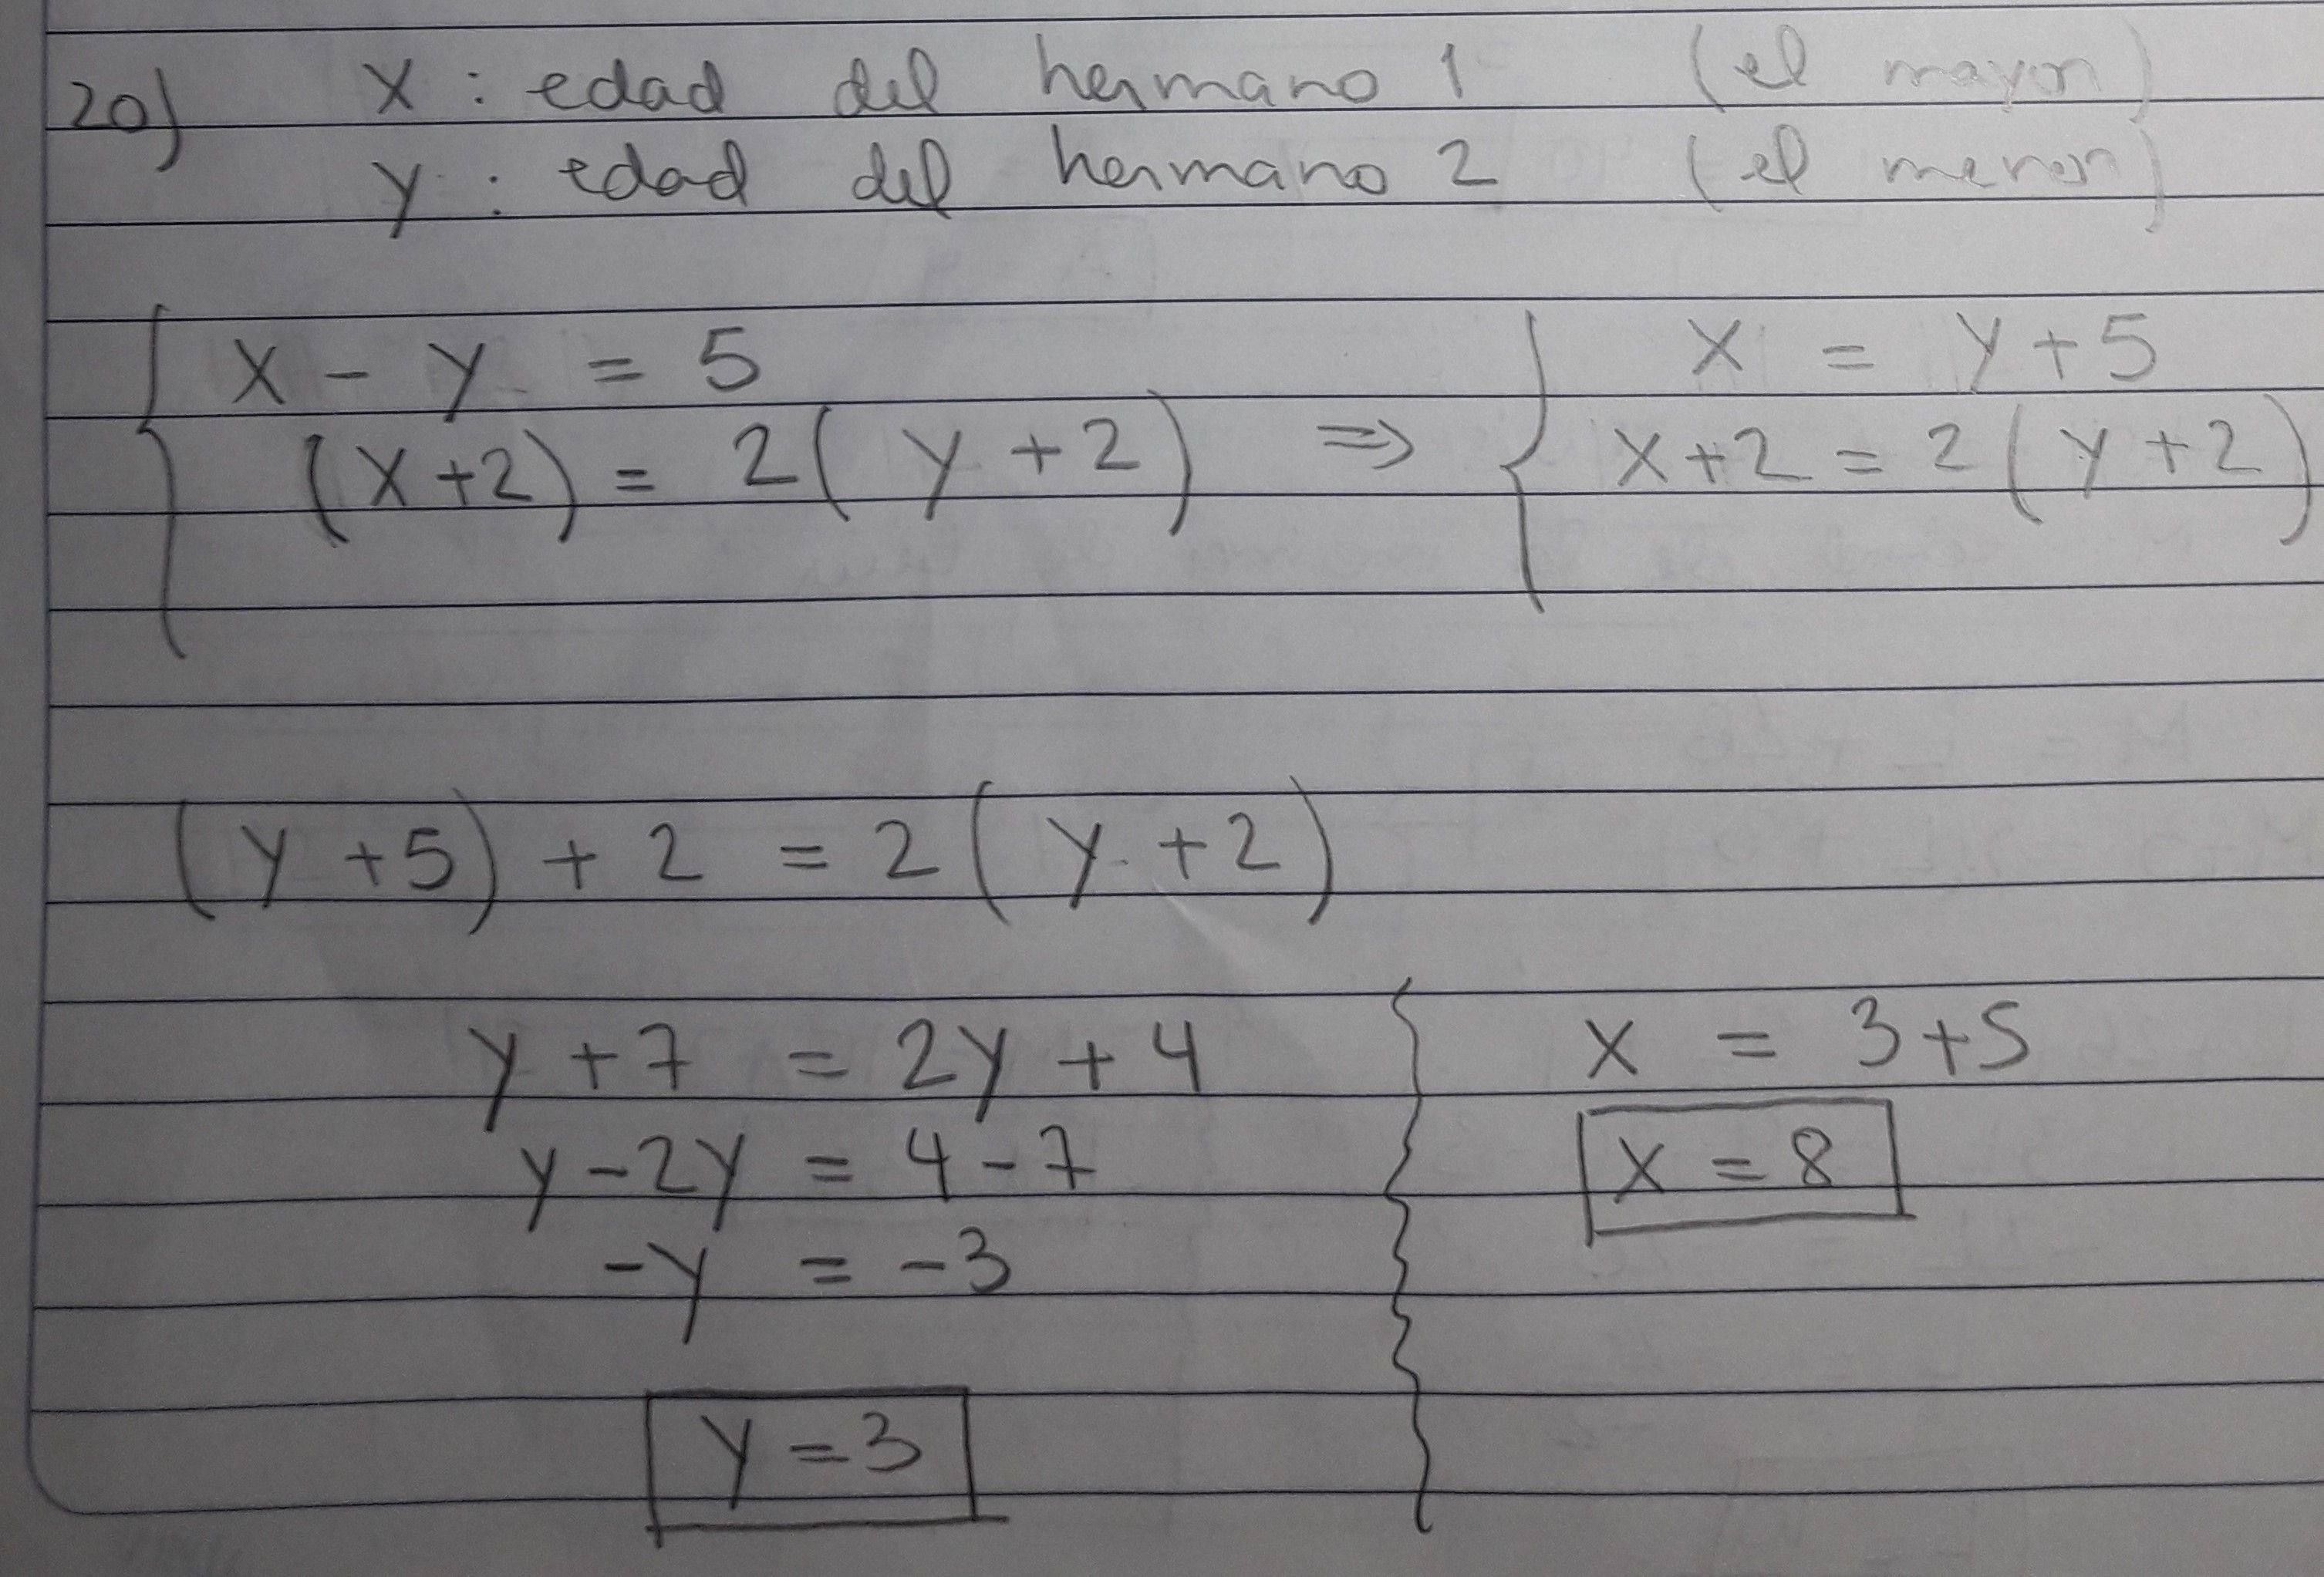 20) x : edad del hermano 1 (el mayor)
y : edad del hermano 2 (el menor)
x - y = 5 ⇒ x = y + 5
(x+2) = 2(y+2) x+2 = 2(y+2)
(y+5) + 2 = 2(y+2)
y + 7 = 2y + 4 x = 3+5
y - 2y = 4 - 7 x = 8
-y = -3
y = 3